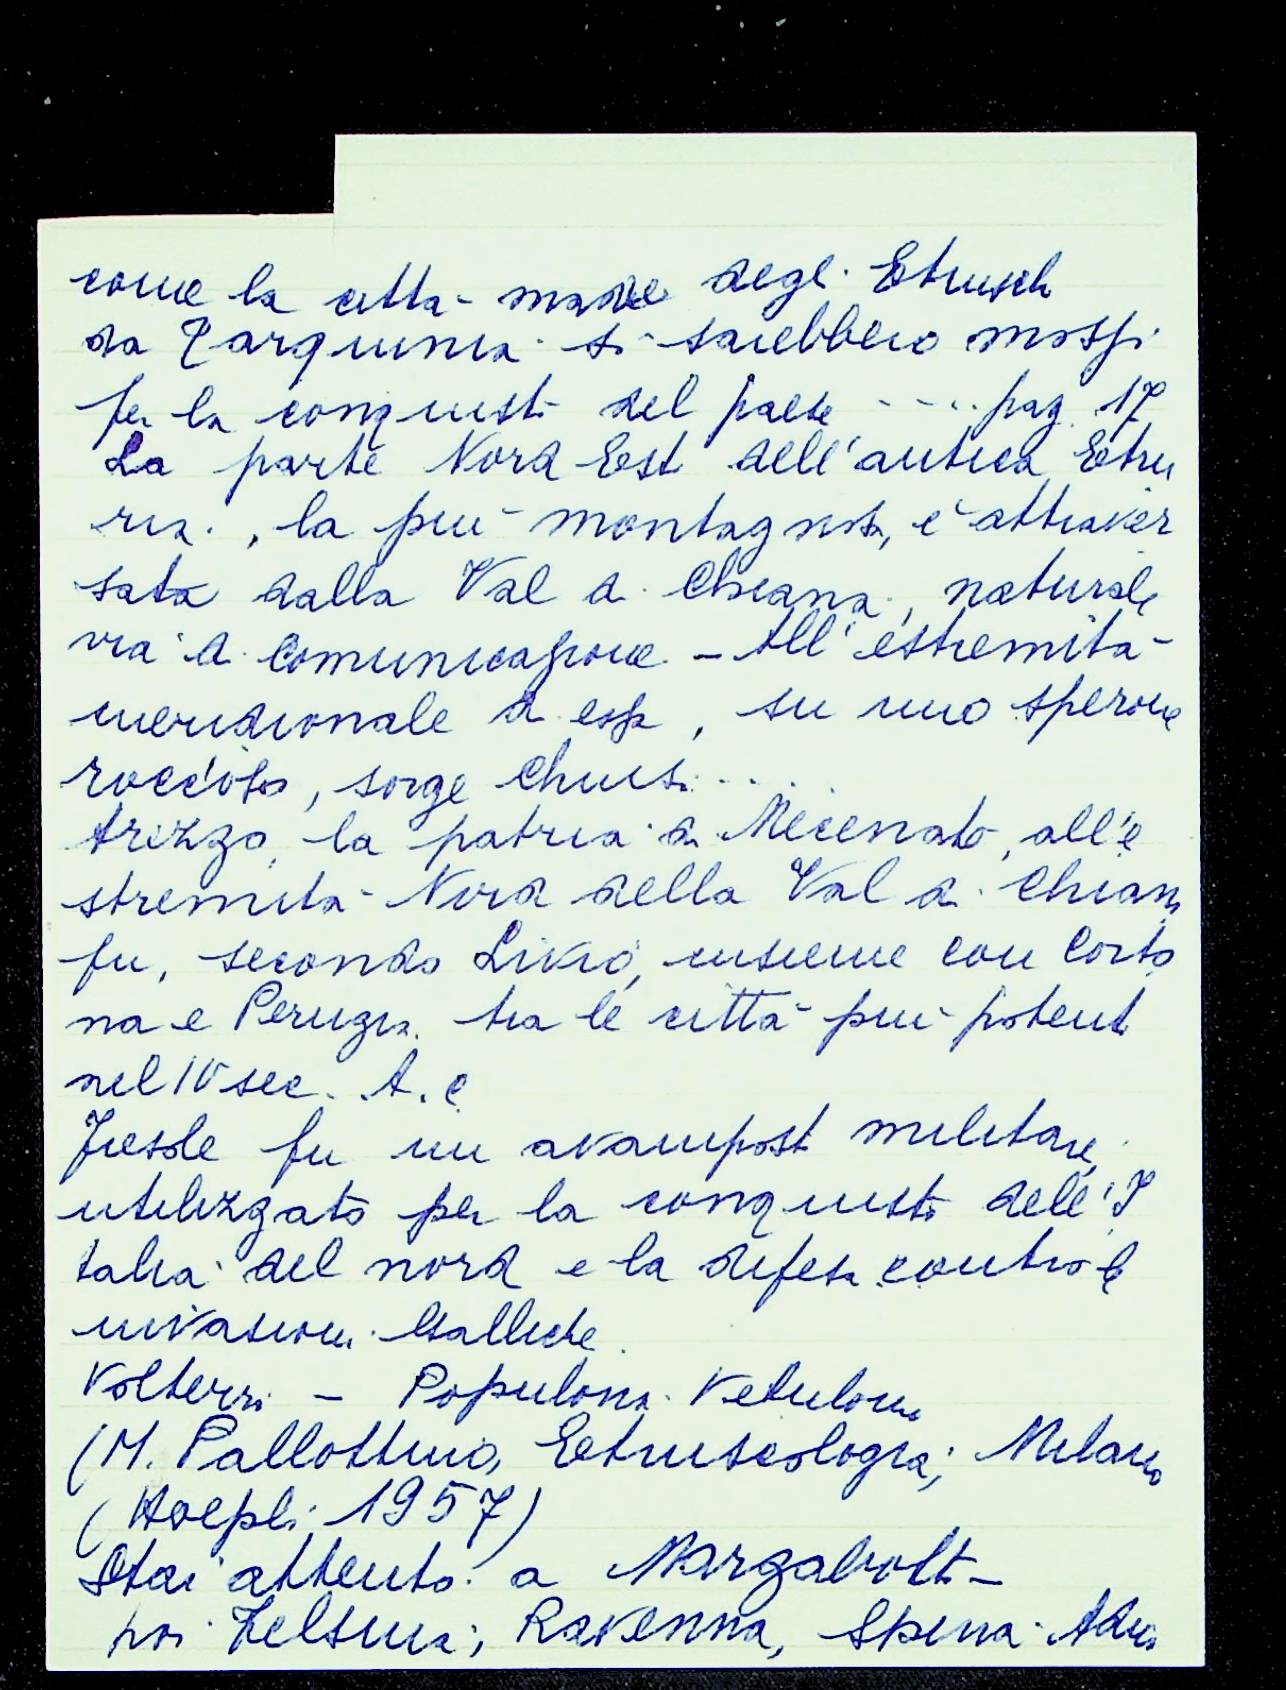 come la città-madre degli Etruschi
da Tarquinia si sarebbero mossi
per la conquista del paese ---.. pag. 17
La parte Nord Est dell'antica Etru
ria, la più montagnosa, è attraver
sata dalla Val di Chiana, naturale
via di comunicazione - All'estremità
meridionale di essa, su uno sperone
roccioso, sorge Chiusi....
Arezzo, la patria di Mecenate, all'e
stremità Nord della Val di Chiana
fu, secondo Livio, insieme con Corto
na e Perugia tra le città più potenti
nel IV sec. A.C
Fiesole fu un avamposto militare,
utilizzato per la conquista dell'I
talia del nord e la difesa contro le
invasioni Galliche.
Volterra - Populonia Vetulonia
(M. Pallottino, Etruscologia, Milano
(Hoepli 1957)
Stai attento a Marzabotto -
poi Felsina, Ravenna, Spina Adria